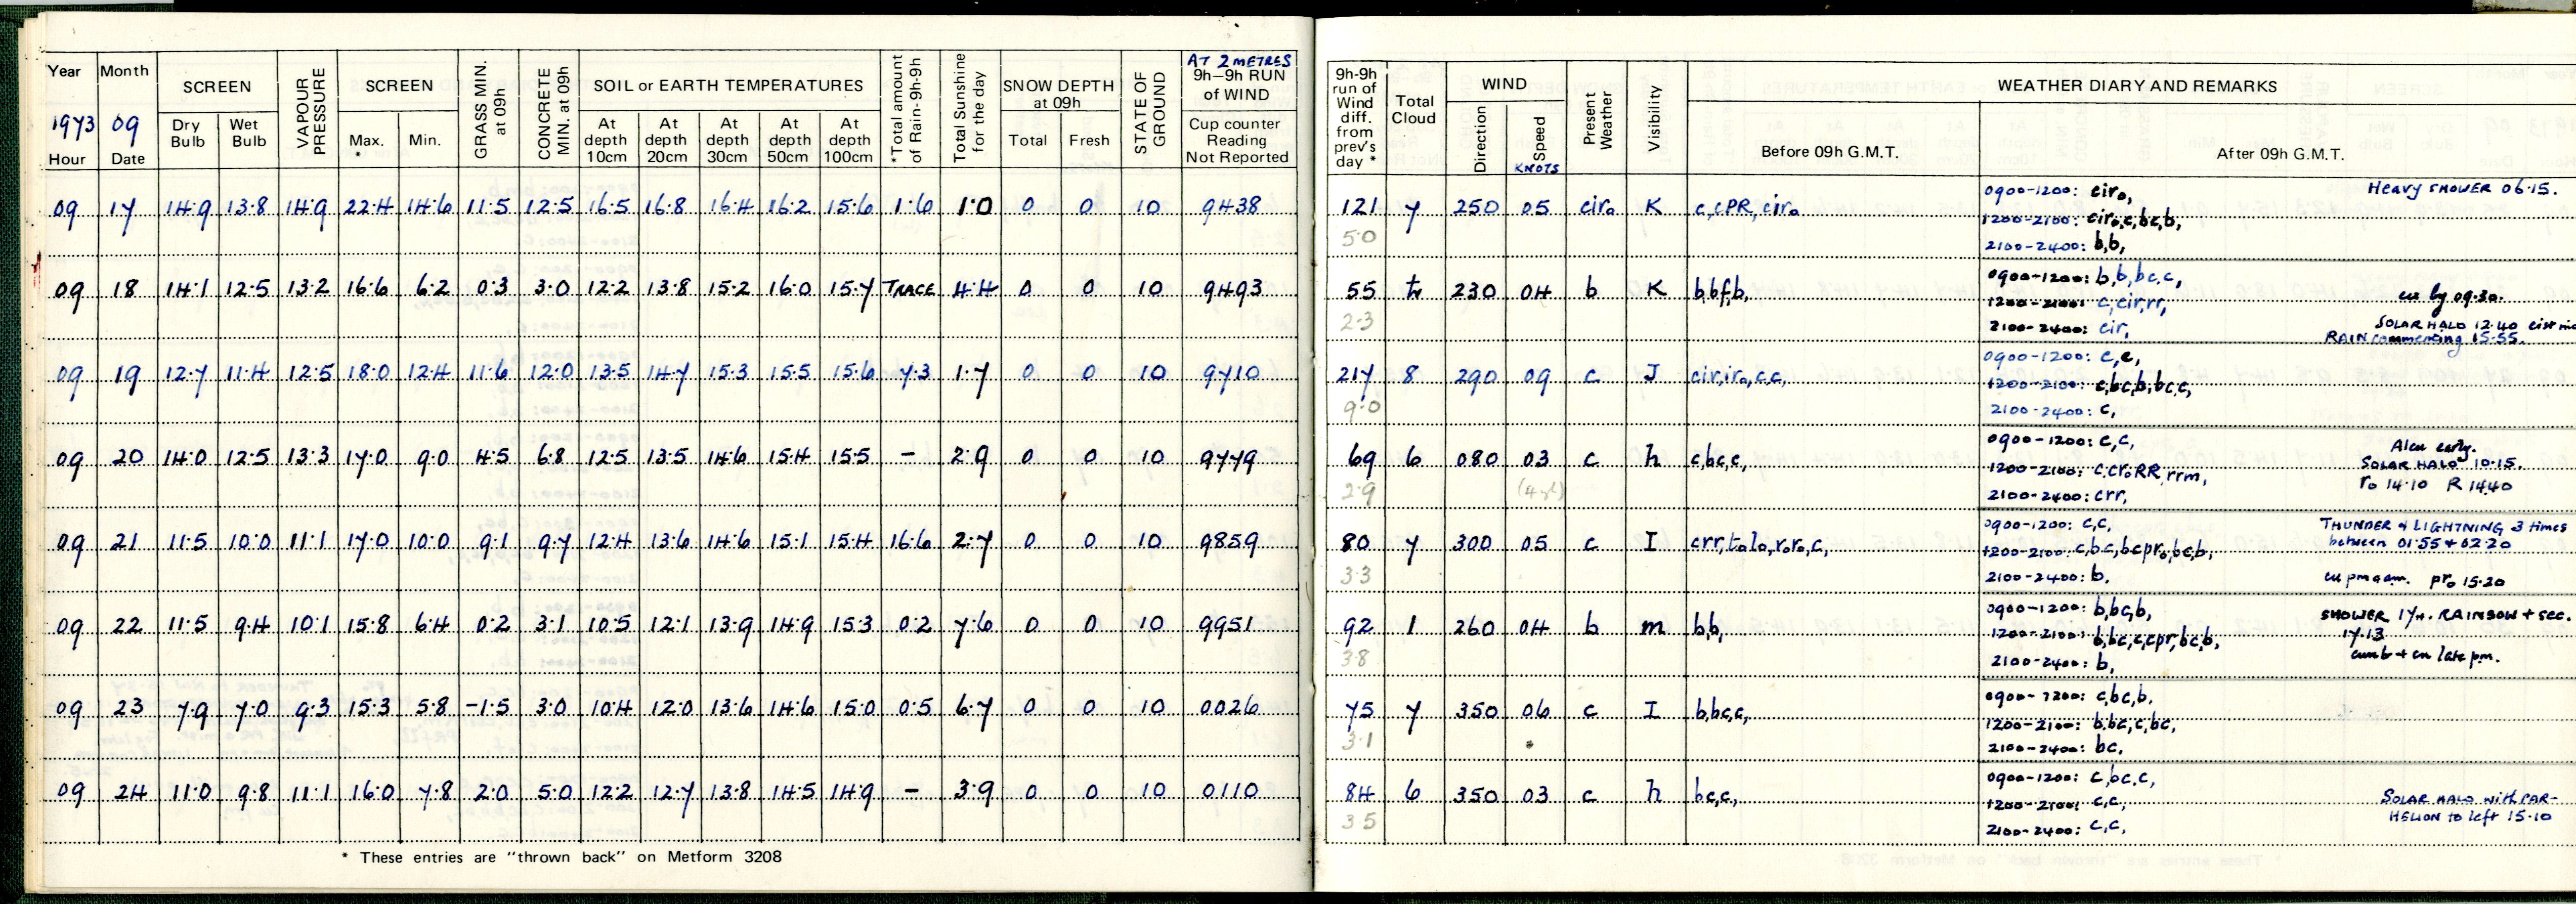 Year Month SCREEN VAPOUR PRESSURE SCREEN GRASS MIN. at 09h CONCRETE MIN. at 09h SOIL or EARTH TEMPERATURES *Total amount of Rain-9h-9h Total Sunshine for the day SNOW DEPTH at 09h STATE OF GROUND AT 2 METRES 9h–9h RUN of WIND
1973 09 Dry Bulb Wet Bulb Max. * Min. At depth 10cm At depth 20cm At depth 30cm At depth 50cm At depth 100cm Total Fresh Cup counter Reading Not Reported
Hour Date
09 17 14.9 13.8 14.9 22.4 14.6 11.5 12.5 16.5 16.8 16.4 16.2 15.6 1.6 1.0 0 0 10 9438
09 18 14.1 12.5 13.2 16.6 6.2 0.3 3.0 12.2 13.8 15.2 16.0 15.7 TRACE 4.4 0 0 10 9493
09 19 12.7 11.4 12.5 18.0 12.4 11.6 12.0 13.5 14.7 15.3 15.5 15.6 7.3 1.7 0 0 10 9710
09 20 14.0 12.5 13.3 17.0 9.0 4.5 6.8 12.5 13.5 14.6 15.4 15.5 – 2.9 0 0 10 9779
09 21 11.5 10.0 11.1 17.0 10.0 9.1 9.7 12.4 13.6 14.6 15.1 15.4 16.6 2.7 0 0 10 9859
09 22 11.5 9.4 10.1 15.8 6.4 0.2 3.1 10.5 12.1 13.9 14.9 15.3 0.2 7.6 0 0 10 9951
09 23 7.9 7.0 9.3 15.3 5.8 -1.5 3.0 10.4 12.0 13.6 14.6 15.0 0.5 6.7 0 0 10 0026
09 24 11.0 9.8 11.1 16.0 7.8 2.0 5.0 12.2 12.7 13.8 14.5 14.9 – 3.9 0 0 10 0110
* These entries are "thrown back" on Metform 3208
9h-9h run of Wind diff. from prev's day * Total Cloud WIND Present Weather Visibility WEATHER DIARY AND REMARKS
Direction Speed KNOTS Before 09h G.M.T. After 09h G.M.T.
121 7 250 05 ciro K c,cPR,ciro 0900-1200: ciro, Heavy SHOWER 06.15.
5.0 1200-2100: ciro,c,bc,b,
2100-2400: b,b,
55 230 04 b K b,bf,b, 0900-1200: b,b,bc,c, cu by 09.30.
2.3 1200-2100: c,cir,rr,
2100-2400: cir, SOLAR HALO 12.40
RAIN commencing 15.55.
217 8 290 09 c J cir,iro,c,c, 0900-1200: c,c,
9.0 1200-2100: c,bc,b,bc,c,
2100-2400: c,
69 6 080 03 c h c,bc,c, 0900-1200: c,c, early.
2.9 1200-2100: c,cro,RR,rrm, SOLAR HALO 10.15.
2100-2400: crr, ro 14.10 R 14.40
80 7 300 05 c I crr,tolo,roro,c, 0900-1200: c,c, THUNDER & LIGHTNING 3 times
3.3 1200-2100: c,bc,bcpro,bc,b, between 01.55 + 02.20
2100-2400: b. pro 15.20
92 1 260 04 b m b,b, 0900-1200: b,bc,b, SHOWER 17H. RAINBOW + SEC.
3.8 1200-2100: b,bc,c,cpr,bc,b, 17.13
2100-2400: b, cumb + cu late pm.
75 7 350 06 c I b,bc,c, 0900-1200: c,bc,b.
3.1 1200-2100: b,bc,c,bc,
2100-2400: bc,
84 6 350 03 c h bc,c, 0900-1200: c,bc,c,
3.5 1200-2100: c,c, SOLAR HALO with PAR-
2100-2400: c,c, HELION to left 15.10